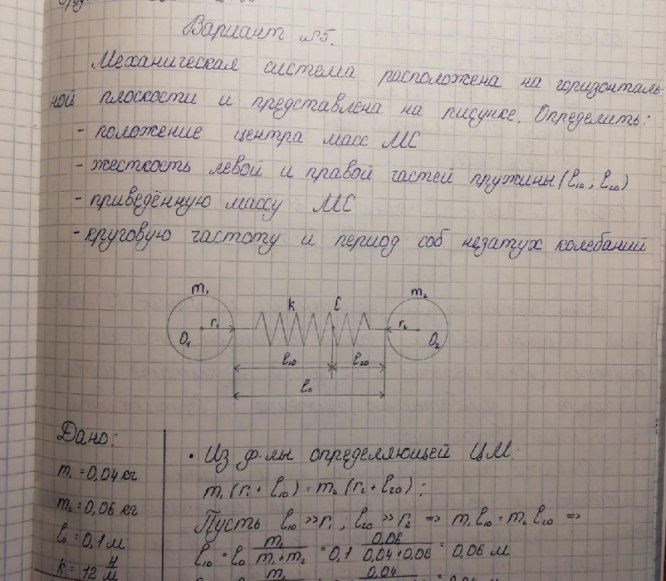 Вариант №5.
Механическая система расположена на горизонталь-
ной плоскости и представлена на рисунке. Определить:
- положение центра масс МС
- жесткость левой и правой частей пружины (l₁₀; l₂₀)
- приведённую массу МС
- круговую частоту и период соб незатух колебаний
m₁ K C m₂
O₁ r₁ r₂ O₂
l₁₀ l₂₀
l₀
Дано:
m₁ = 0,04 кг
m₂ = 0,06 кг
l₀ = 0,1 м
k = 12 Н/м
• Из ф-лы определяющей ЦМ:
m₁(r₁ + l₁₀) = m₂(r₂ + l₂₀):
Пусть l₁₀ >> r₁; l₂₀ >> r₂ => m₁l₁₀ = m₂l₂₀ =>
l₁₀ = l₀ m₂/(m₁+m₂) = 0,1 0,06/(0,04+0,06) = 0,06 м
0,04